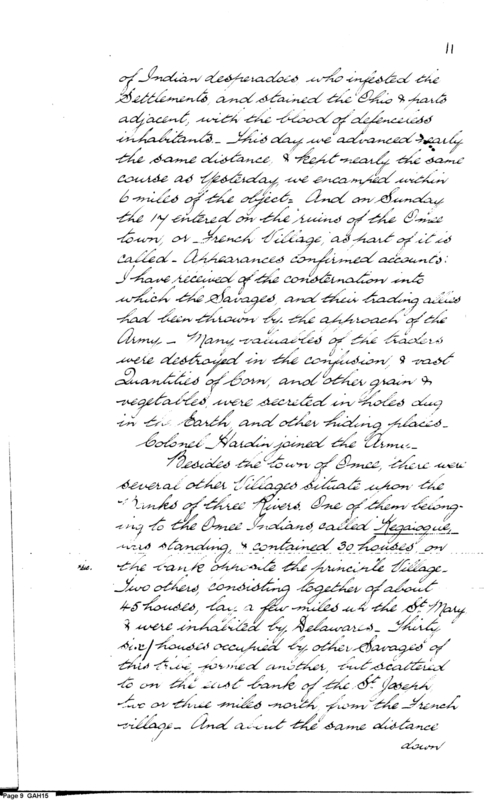 11
of Indian desperadoes who infested the
Settlements, and stained the Ohio & parts
adjacent, with the blood of defenceless
inhabitants_ This day we advanced nearly
the same distance, & kept nearly the same
course as Yesterday, we encamped within
6 miles of the object_ And on Sunday
the 17 entered on the ruins of the Omee
town, or French Village, as part of it is
called_ Appearances confirmed accounts
I have received of the consternation into
which the Savages, and their trading allies
had been thrown by the approach of the
Army_ Many valuables of the traders
were destroyed in the confusion, & vast
Quantities of Corn, and other grain &
vegetables, were secreted in holes dug
in the Earth, and other hiding places_
Colonel Hardin joined the Army_
Besides the town of Omee, there were
several other Villages situate upon the
Banks of three Rivers. One of them belong-
ing to the Omee Indians, called Kegaiogue,
was standing, & contained 30 houses, on
the bank opposite the principle Village_
Two others, consisting together of about
45 houses, lay a few miles up the St. Mary
& were inhabited by Delawares_ Thirty
six/ houses occupied by other Savages of
this tribe, formed another, but scattered
to on the east bank of the St. Joseph
two or three miles north, from the French
village_ And about the same distance
down
Page 9 GAH15